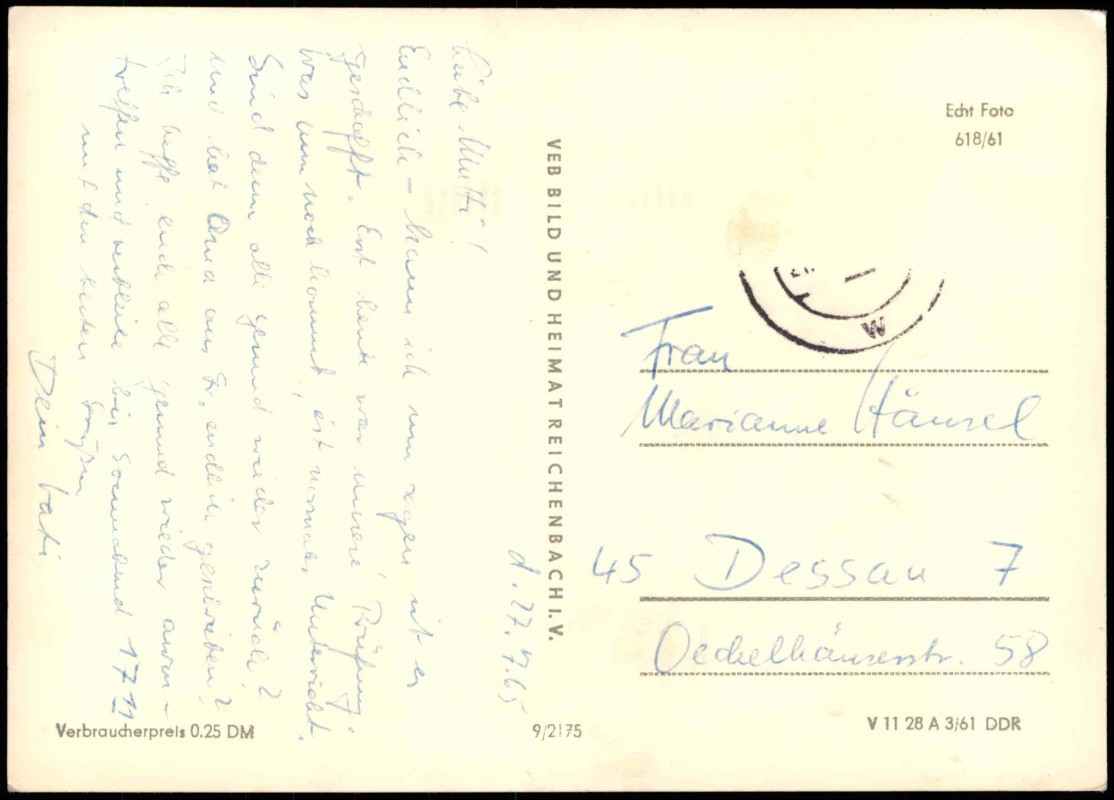 d. 27.7.65
Liebe Mutti!
Endlich kann ich nun sagen ist es
geschafft. Erst heute war unsere Prüfung.
Was nun noch kommt, ist normaler Unterricht.
Sind denn alle gesund wieder zurück?
und hat Oma aus Fr. endlich geschrieben?
Ich hoffe euch alle gesund wieder anzu-
treffen und verbleibe bis Sonnabend 17 11
mit den besten Grüßen
Dein
VEB BILD UND HEIMAT REICHENBACH I.V.
Echt Foto
618/61
W
Frau
Marianne Hänsel
45 Dessau 7
Oechelhäuserstr. 58
Verbraucherpreis 0.25 DM
9/2175
V 11 28 A 3/61 DDR